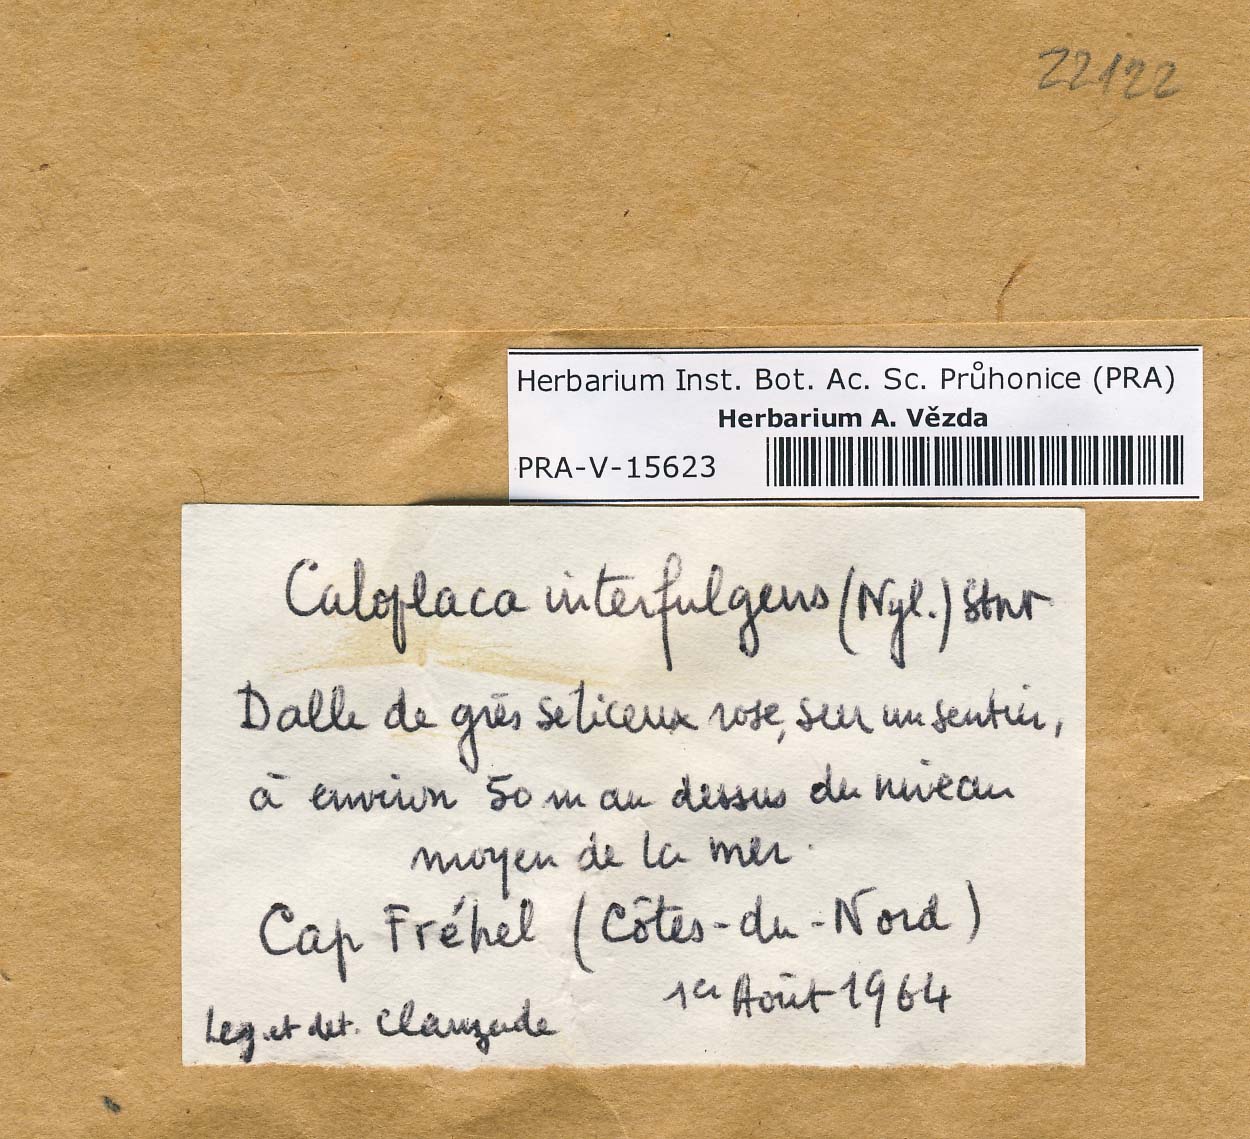 22122
Herbarium Inst. Bot. Ac. Sc. Průhonice (PRA)
Herbarium A. Vězda
PRA-V-15623
Caloplaca interfulgens (Nyl.) Stnr
Dalle de grès seliceux rose, sur un sentier,
à environ 50 m au dessus du niveau
moyen de la mer.
Cap Fréhel (Côtes-du-Nord)
1er Août 1964
Leg. et det. Clauzade